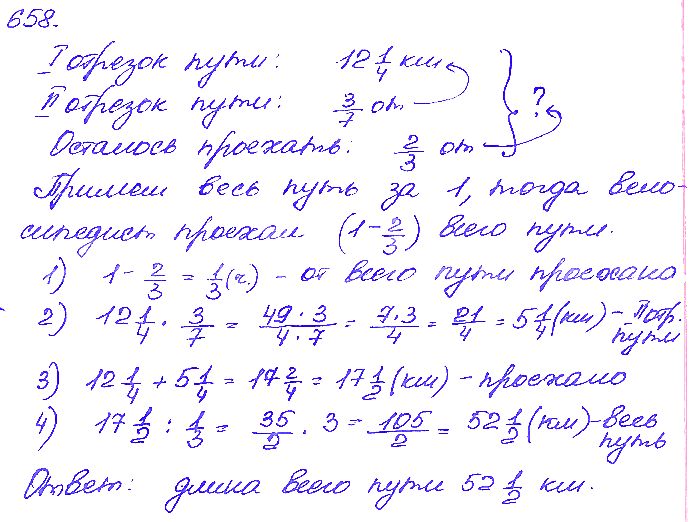 658.
I отрезок пути: 12 1/4 км
II отрезок пути: 3/7 от
?
Осталось проехать: 2/3 от
Примем весь путь за 1, тогда вело-
сипедист проехал (1 - 2/3) всего пути.
1) 1 - 2/3 = 1/3 (ч.) - от всего пути проехано
2) 12 1/4 · 3/7 = 49·3/4·7 = 7·3/4 = 21/4 = 5 1/4 (км) - II отр. пути
3) 12 1/4 + 5 1/4 = 17 2/4 = 17 1/2 (км) - проехано
4) 17 1/2 : 1/3 = 35/2 · 3 = 105/2 = 52 1/2 (км) - весь путь
Ответ: длина всего пути 52 1/2 км.